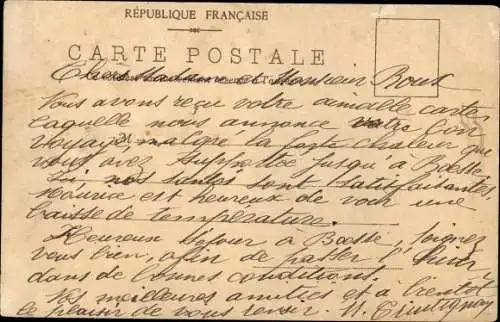 RÉPUBLIQUE FRANÇAISE
CARTE POSTALE
Chers Madame et Monsieur Roux
Nous avons reçu votre aimable carte
laquelle nous annonce votre bon
voyage malgré la forte chaleur que
vous avez supportée jusqu'à Boësse
Ici nos santés sont satisfaisantes,
Maurice est heureux de voir une
baisse de température.
Heureux séjour à Boësse, soignez
vous bien, afin de passer l'hiver
dans de bonnes conditions.
Nos meilleures amitiés et à bientôt
le plaisir de vous revoir.